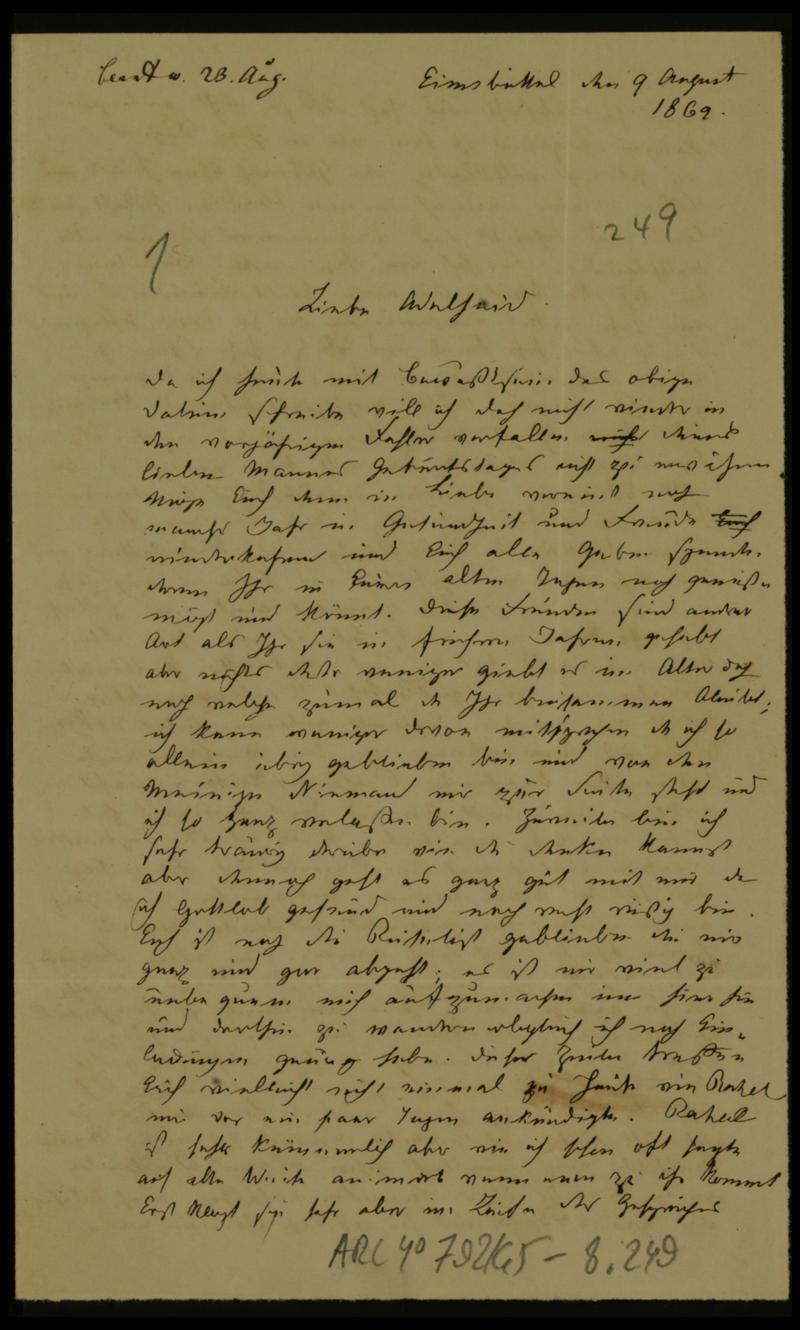 beantw. 23. Aug.
Eimsbüttel den 9 August
1869.
249
1
Liebe Adelheid.
Da ich heute mit Bewußtsein das obige
Datum schreibe will ich doch nicht wieder in
den vorjährigen Fehler verfallen nicht deines
lieben Mannes Geburtstages nicht zu erwähnen
Möge Euch denn in Liebe vereint noch
manches Jahr in Gesundheit und Freude Euch
wiederkehren und Euch alle Gaben spenden
deren Ihr in Euren alten Tagen noch genießen
mögt und könnt. Diese Freuden sind anderer
Art als Ihr sie in früheren Jahren gehabt
aber nichts desto weniger giebt es im Alter doch
noch welche zumal da Ihr beisammen bleibt;
ich kann weniger davon mitsprechen da ich so
allein übrig geblieben bin und von den
Meinigen Niemand mir zur Seite steht und
ich so ganz verlassen bin. Zuweilen bin ich
sehr traurig darüber wie du denken kannst
aber dennoch geht es ganz gut mit mir da
ich Gottlob gesund und noch recht rüstig bin.
Euch ist noch die Reiselust geblieben die mir
ganz und gar abgeht; es ist mir viel zu
unbequem mich aufzumachen um hier hin
und dorthin zu wandern obgleich ich noch Ein-
ladungen genug habe. Dieser Zeilen treffen
Euch vielleicht nicht einmal zu Hause wie Rahel
mir vor ein paar Tagen ankündigte. Rahel
ist sehr kümmerlich aber wie ich schon oft sagte
auf alle Weise animirt wenn man zu ihr kommt
Erst klagt sie sehr aber im Laufe des Gespräches
ARC 4° 792/G5 - 8.249